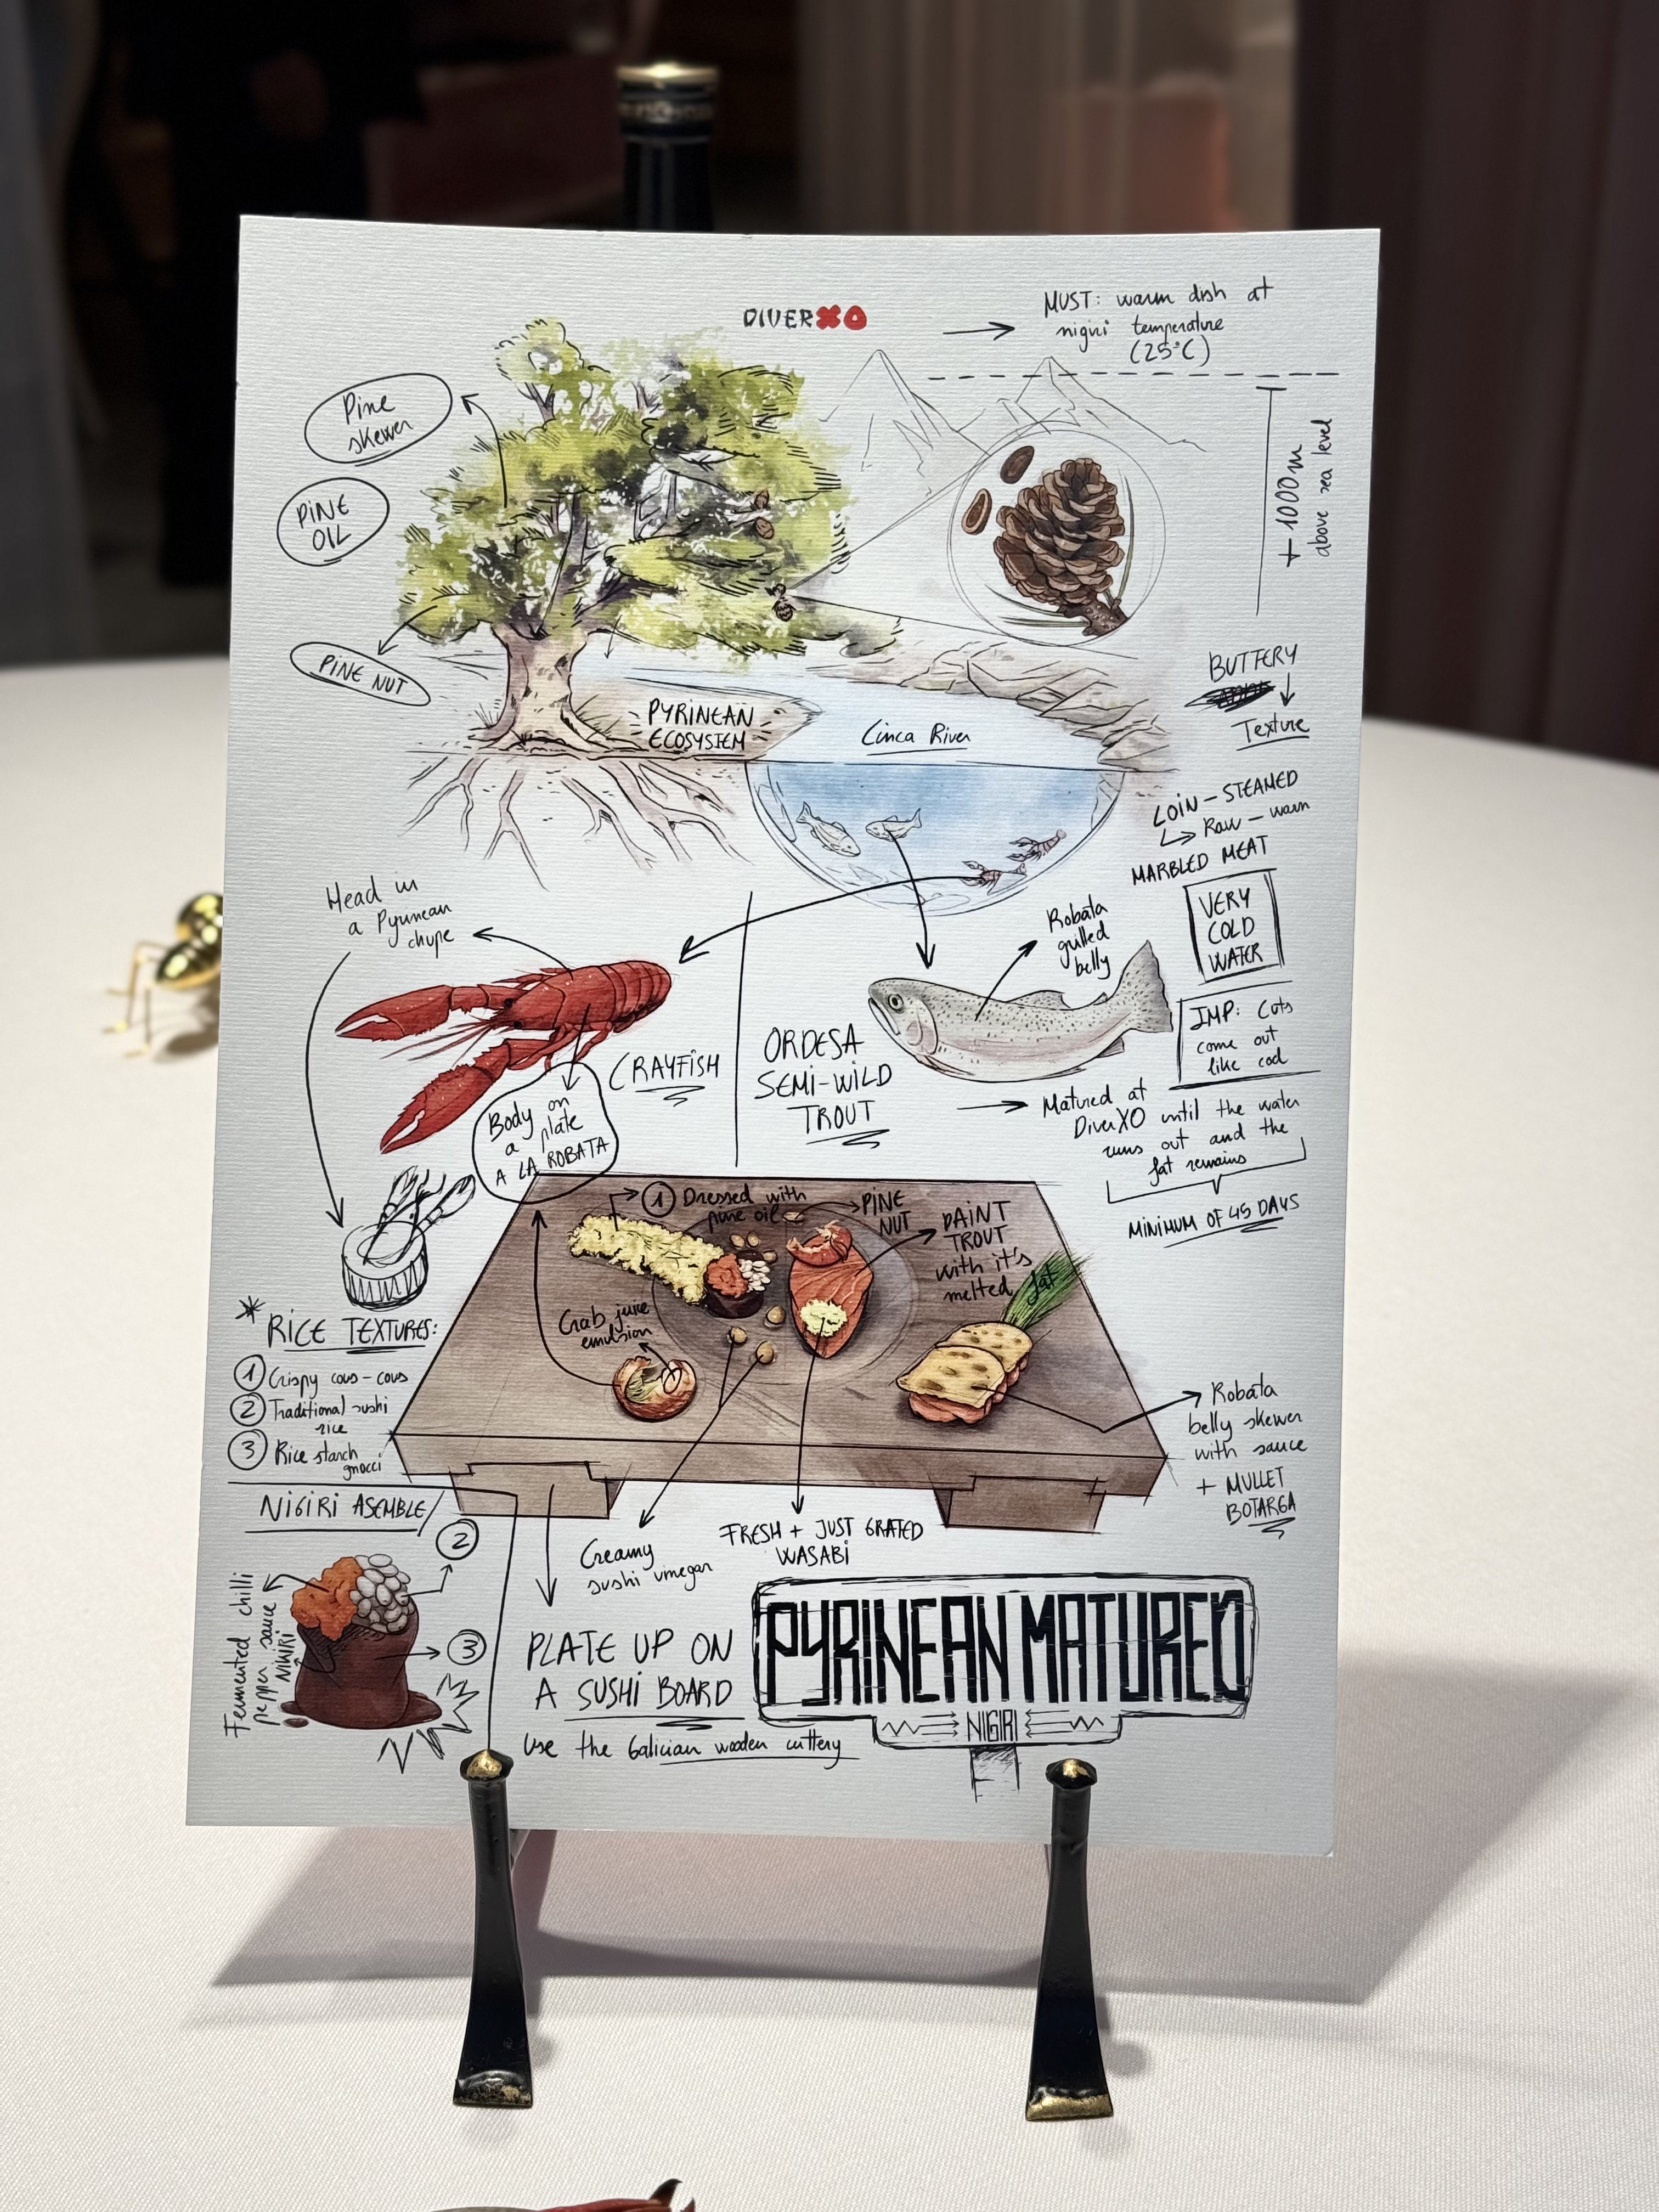 DIVERXO
MUST: warm dish at
nigiri temperature
(25°C)
Pine
skewer
PINE
OIL
PINE NUT
+ 1000m
above sea level
PYRINEAN
ECOSYSTEM
Cinca River
BUTTERY
Texture
LOIN - STEAMED
Raw - warm
MARBLED MEAT
VERY
COLD
WATER
Head in
a Pyrinean
chupe
Robata
grilled
belly
IMP: Cuts
come out
like cod
CRAYFISH
ORDESA
SEMI-WILD
TROUT
Body on
a plate
A LA ROBATA
Matured at
DiverXO until the water
runs out and the
fat remains
MINIMUM OF 45 DAYS
1 Dressed with
pine oil
PINE
NUT
PAINT
TROUT
with it's
melted fat
Crab juice
emulsion
* RICE TEXTURES:
1 Crispy cous-cous
2 Traditional sushi
rice
3 Rice starch
gnocci
Robata
belly skewer
with sauce
+ MULLET
BOTARGA
NIGIRI ASEMBLE/
2
3
Fermented chilli
pepper sauce
NIKIRI
Creamy
sushi vinegar
FRESH + JUST GRATED
WASABI
PLATE UP ON
A SUSHI BOARD
Use the Galician wooden cuttery
PYRINEAN MATURED
NIGIRI